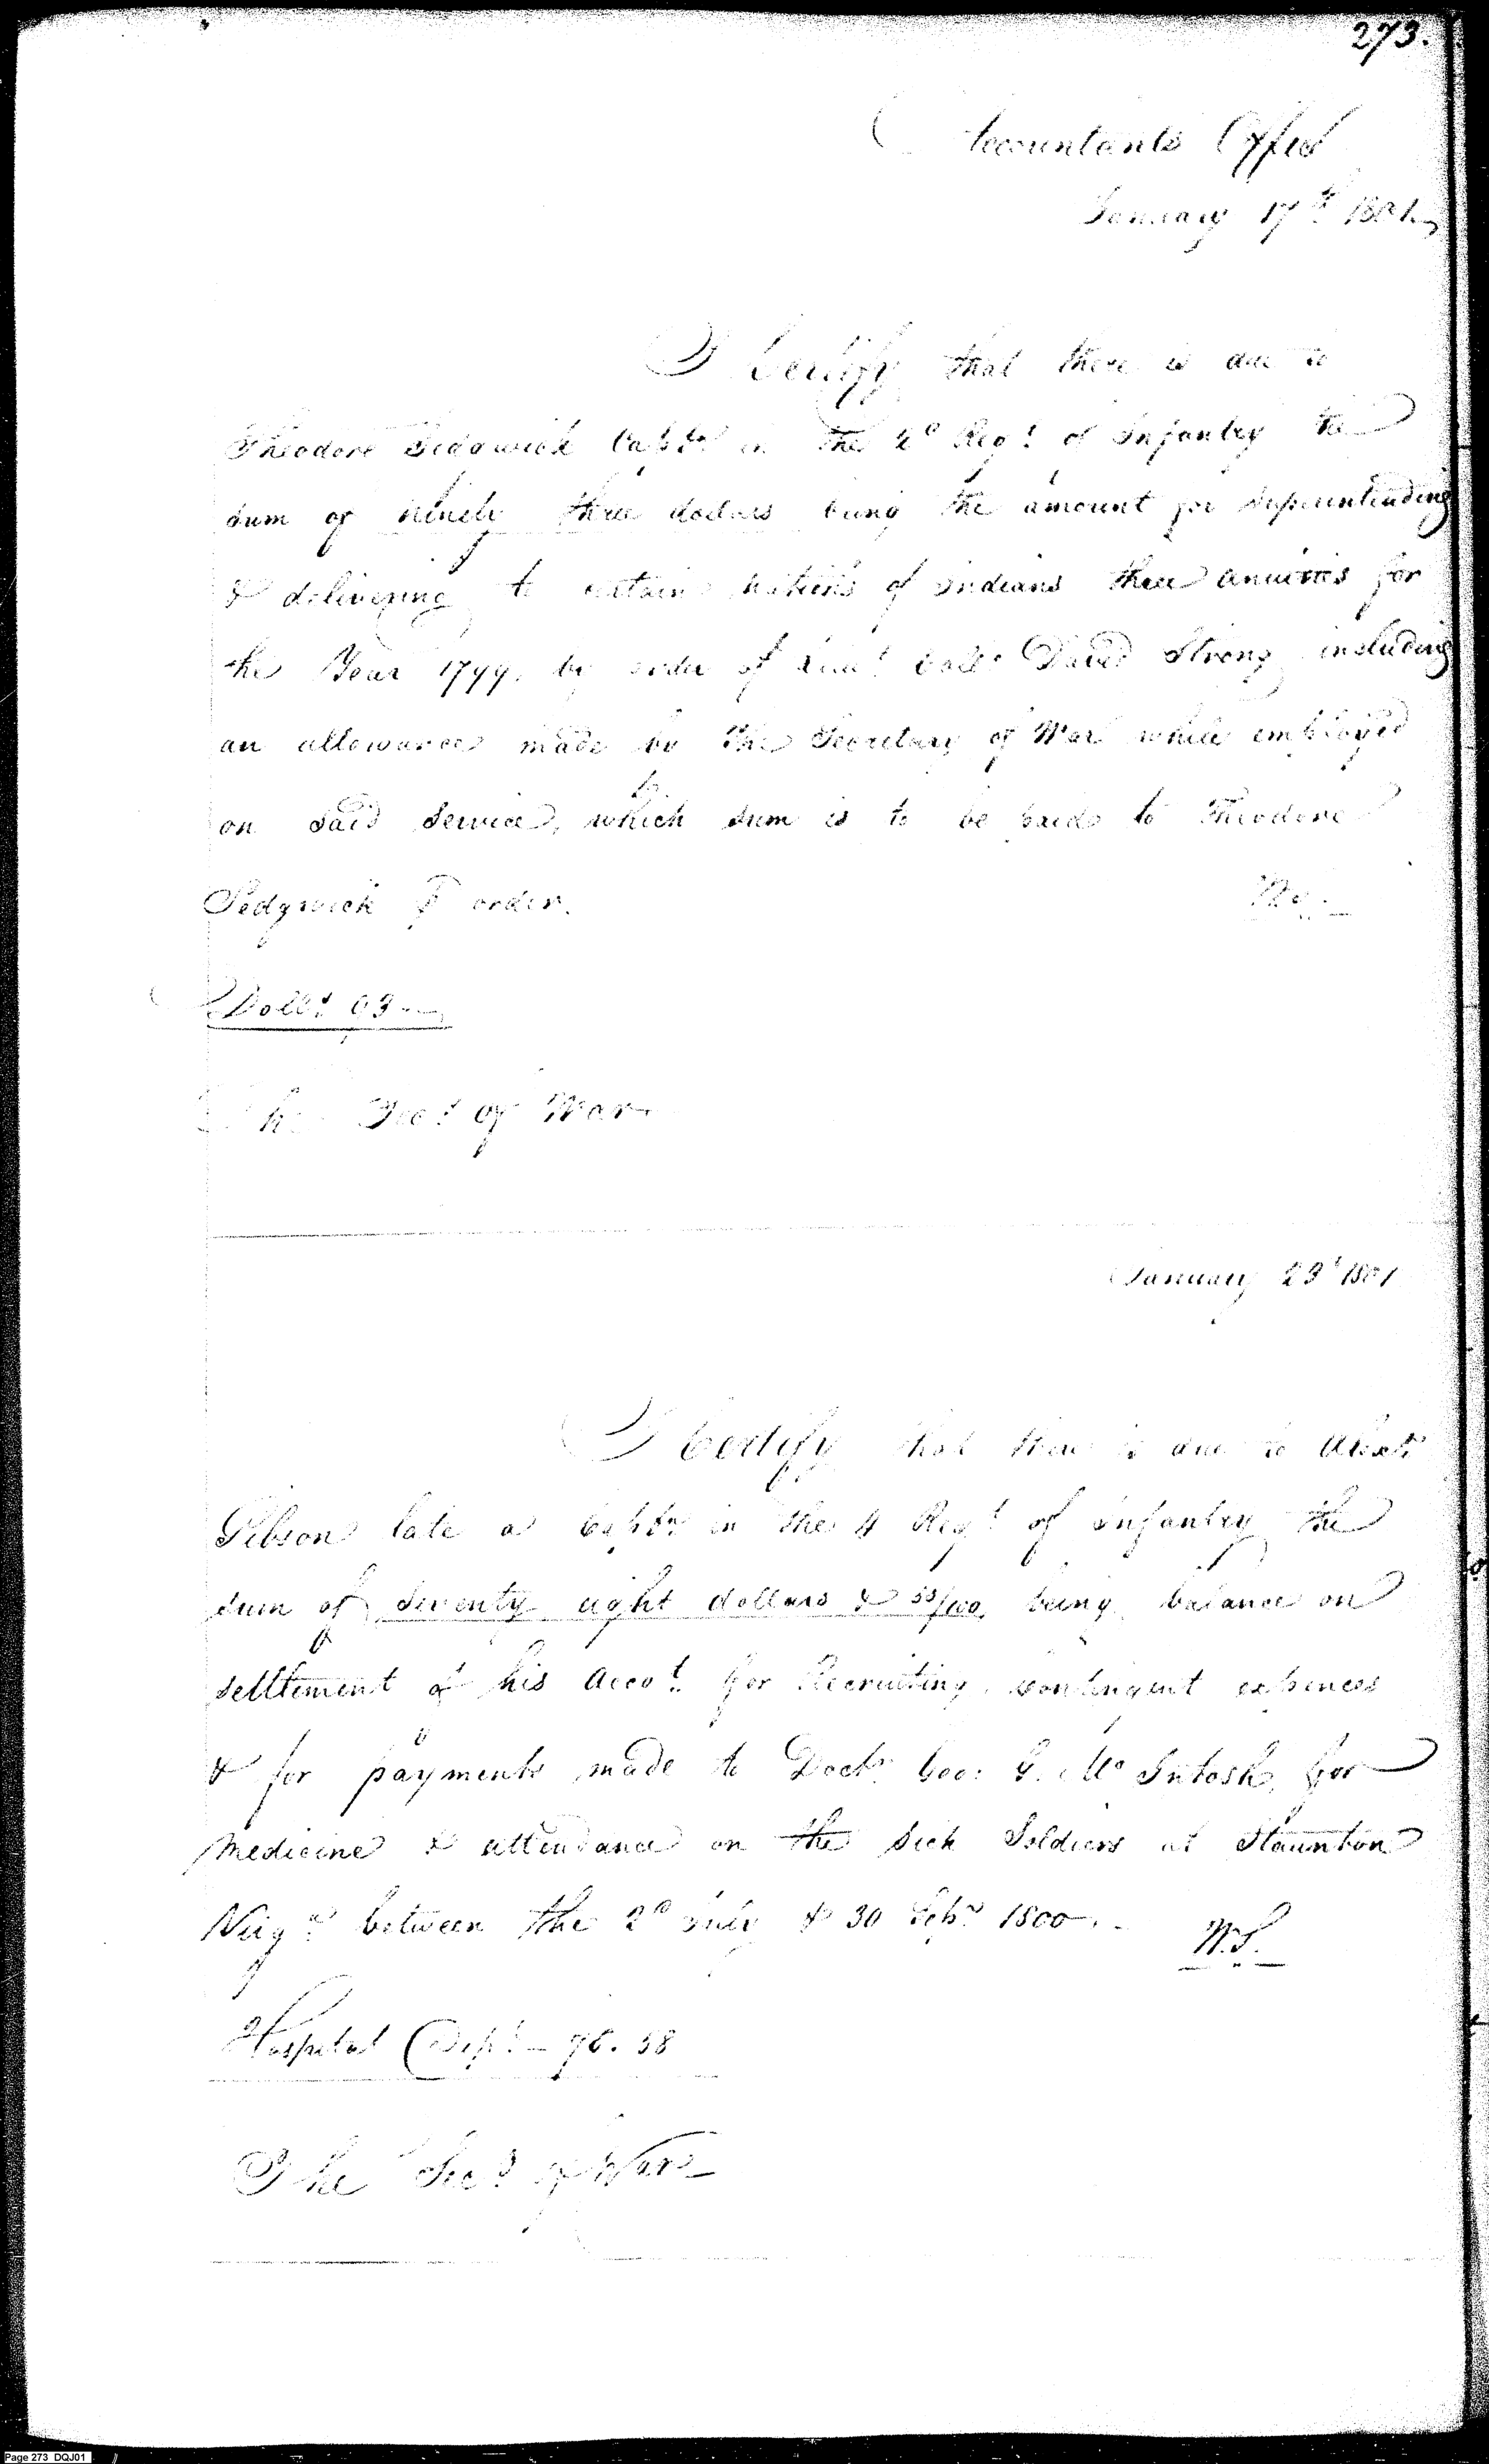 273.
Accountants Office
January 17th 1801
I Certify that there is due to
Theodore Sedgwick Captn in the 2d Regt of Infantry the
sum of ninety three dollars being the amount for superintending
& delivering to certain nations of Indians their annuities for
the Year 1799, by order of Lieut Coll David Strong including
an allowance made by the Secretary of War while employed
on said service, which sum is to be paid to Theodore
Sedgwick or order.
Dolls 93
The Secy of War
January 23d 1801
I Certify that there is due to Alexr
Gibson late a Captn in the 4 Regt of Infantry the
sum of seventy eight dollars & 58/100, being balance on
settlement of his Accot for Recruiting, contingent expences
& for payments made to Doctr Geo: G. McIntosh, for
Medicine & attendance on the sick Soldiers at Staunton
Virga between the 2d July & 30 Sepr 1800.
W.S.
Hospital Dept - 78.58
The Secy of War
Page 273 DQJ01